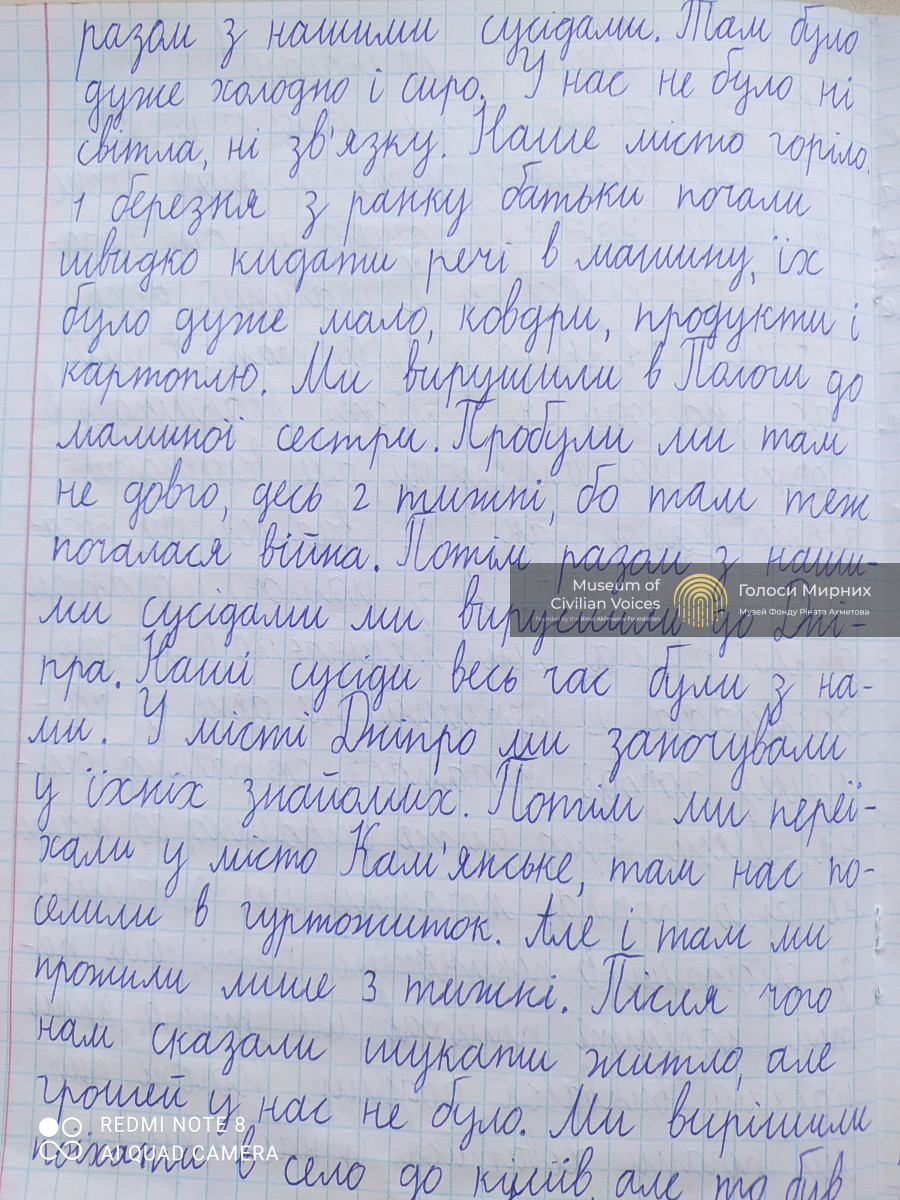 разом з нашими сусідами. Там було
дуже холодно і сиро. У нас не було ні
світла, ні зв'язку. Наше місто горіло.
1 березня з ранку батьки почали
швидко кидати речі в машину, їх
було дуже мало, ковдри, продукти і
картоплю. Ми вирушили в Пологи до
маминої сестри. Пробули ми там
не довго, десь 2 тижні, бо там теж
почалася війна. Потім разом з наши-
ми сусідами ми вирушили до Дні-
пра. Наші сусіди весь час були з на-
ми. У місті Дніпро ми заночували
у їхніх знайомих. Потім ми переї-
хали у місто Кам'янське, там нас по-
селили в гуртожиток. Але і там ми
прожили лише 3 тижні. Після чого
нам сказали шукати житло, але
грошей у нас не було. Ми вирішили
поїхати в село до але то був
Museum of
Civilian Voices
Founded by the Rinat Akhmetov Foundation
Голоси Мирних
Музей Фонду Ріната Ахметова
REDMI NOTE 8
AI QUAD CAMERA